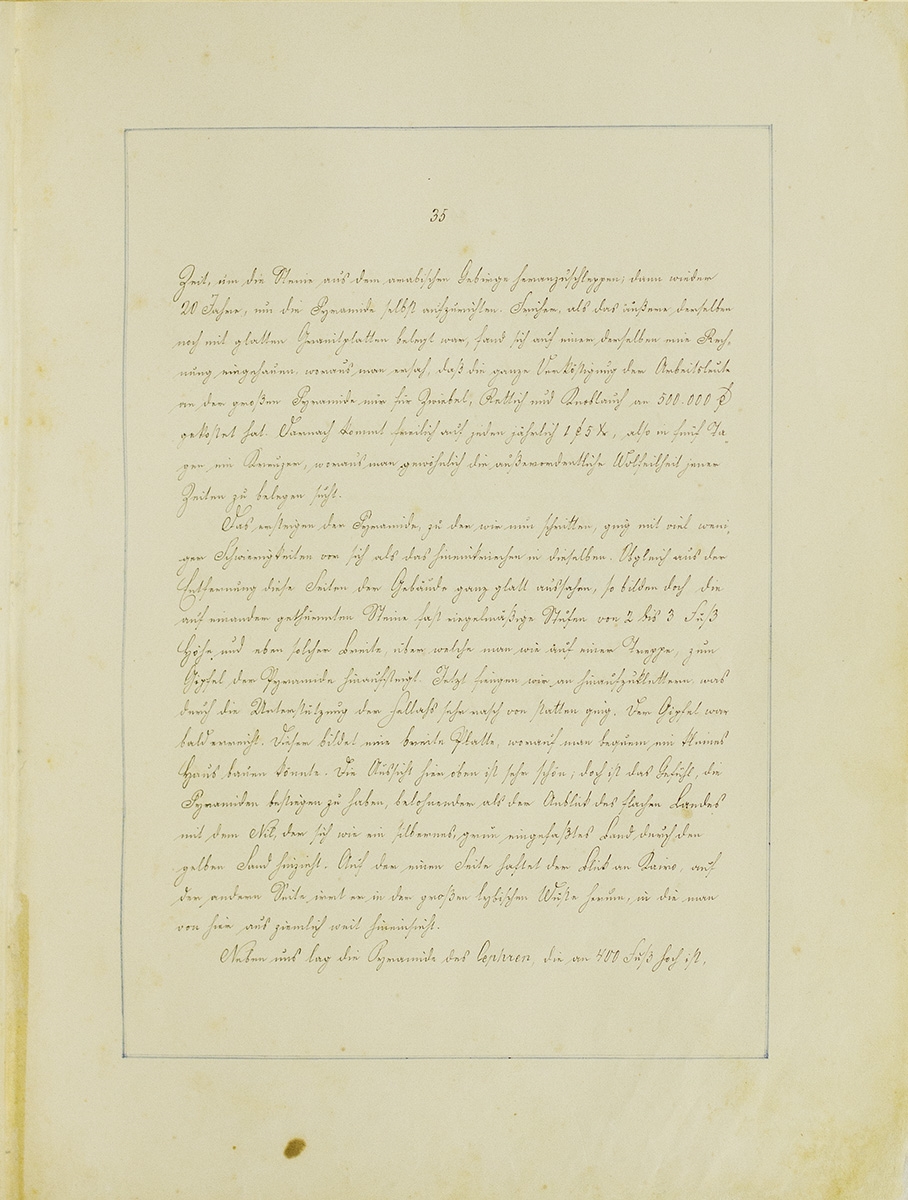 35
Zeit, um die Steine aus dem arabischen Gebirge heranzuschleppen; dann wieder
20 Jahre, um die Pyramide selbst aufzurichten. Früher, als das äußere derselben
noch mit glatten Granitplatten belegt war, fand sich auf einer derselben eine Rech-
nung eingehauen, woraus man ersah, daß die ganze Verköstigung der Arbeitsleute
an der großen Pyramide nur für Zwiebel, Rettich und Knoblauch an 500.000 f
gekostet hat. Darnach kommt freilich auf jeden jährlich 1 f 5 X, also in fünf Ta-
gen ein Kreuzer, woraus man gewöhnlich die außerordentliche Wolfeilheit jener
Zeiten zu belegen sucht.
Das ersteigen der Pyramide, zu der wir nun schritten, ging mit viel weni-
ger Schwierigkeiten vor sich als das hineinkriechen in dieselben. Obgleich aus der
Entfernung diese Seiten der Gebäude ganz glatt aussahen, so bilden doch die
auf einander gethürmten Steine fast regelmäßige Stufen von 2 bis 3 Fuß
Höhe und eben solcher Breite, über welche man wie auf einer Treppe, zum
Gipfel der Pyramide hinaufsteigt. Jetzt fiengen wir an hinaufzuklettern was
durch die Unterstützung der Fellahs sehr rasch von statten ging. Der Gipfel war
bald erreicht. Dieser bildet eine breite Platte, worauf man bequem ein kleines
Haus bauen könnte. Die Aussicht hier oben ist sehr schön; doch ist das Gefühl, die
Pyramiden bestiegen zu haben, belohnender als der Anblick des flachen Landes
mit dem Nil, der sich wie ein silbernes, grün eingefaßtes Band durch den
gelben Sand hinzieht. Auf der einen Seite haftet der Blick an Kairo, auf
der andern Seite irrt er in der großen lybischen Wüste herum, in die man
von hier aus ziemlich weit hineinsieht.
Neben uns lag die Pyramide des Cephren, die an 400 Fuß hoch ist,